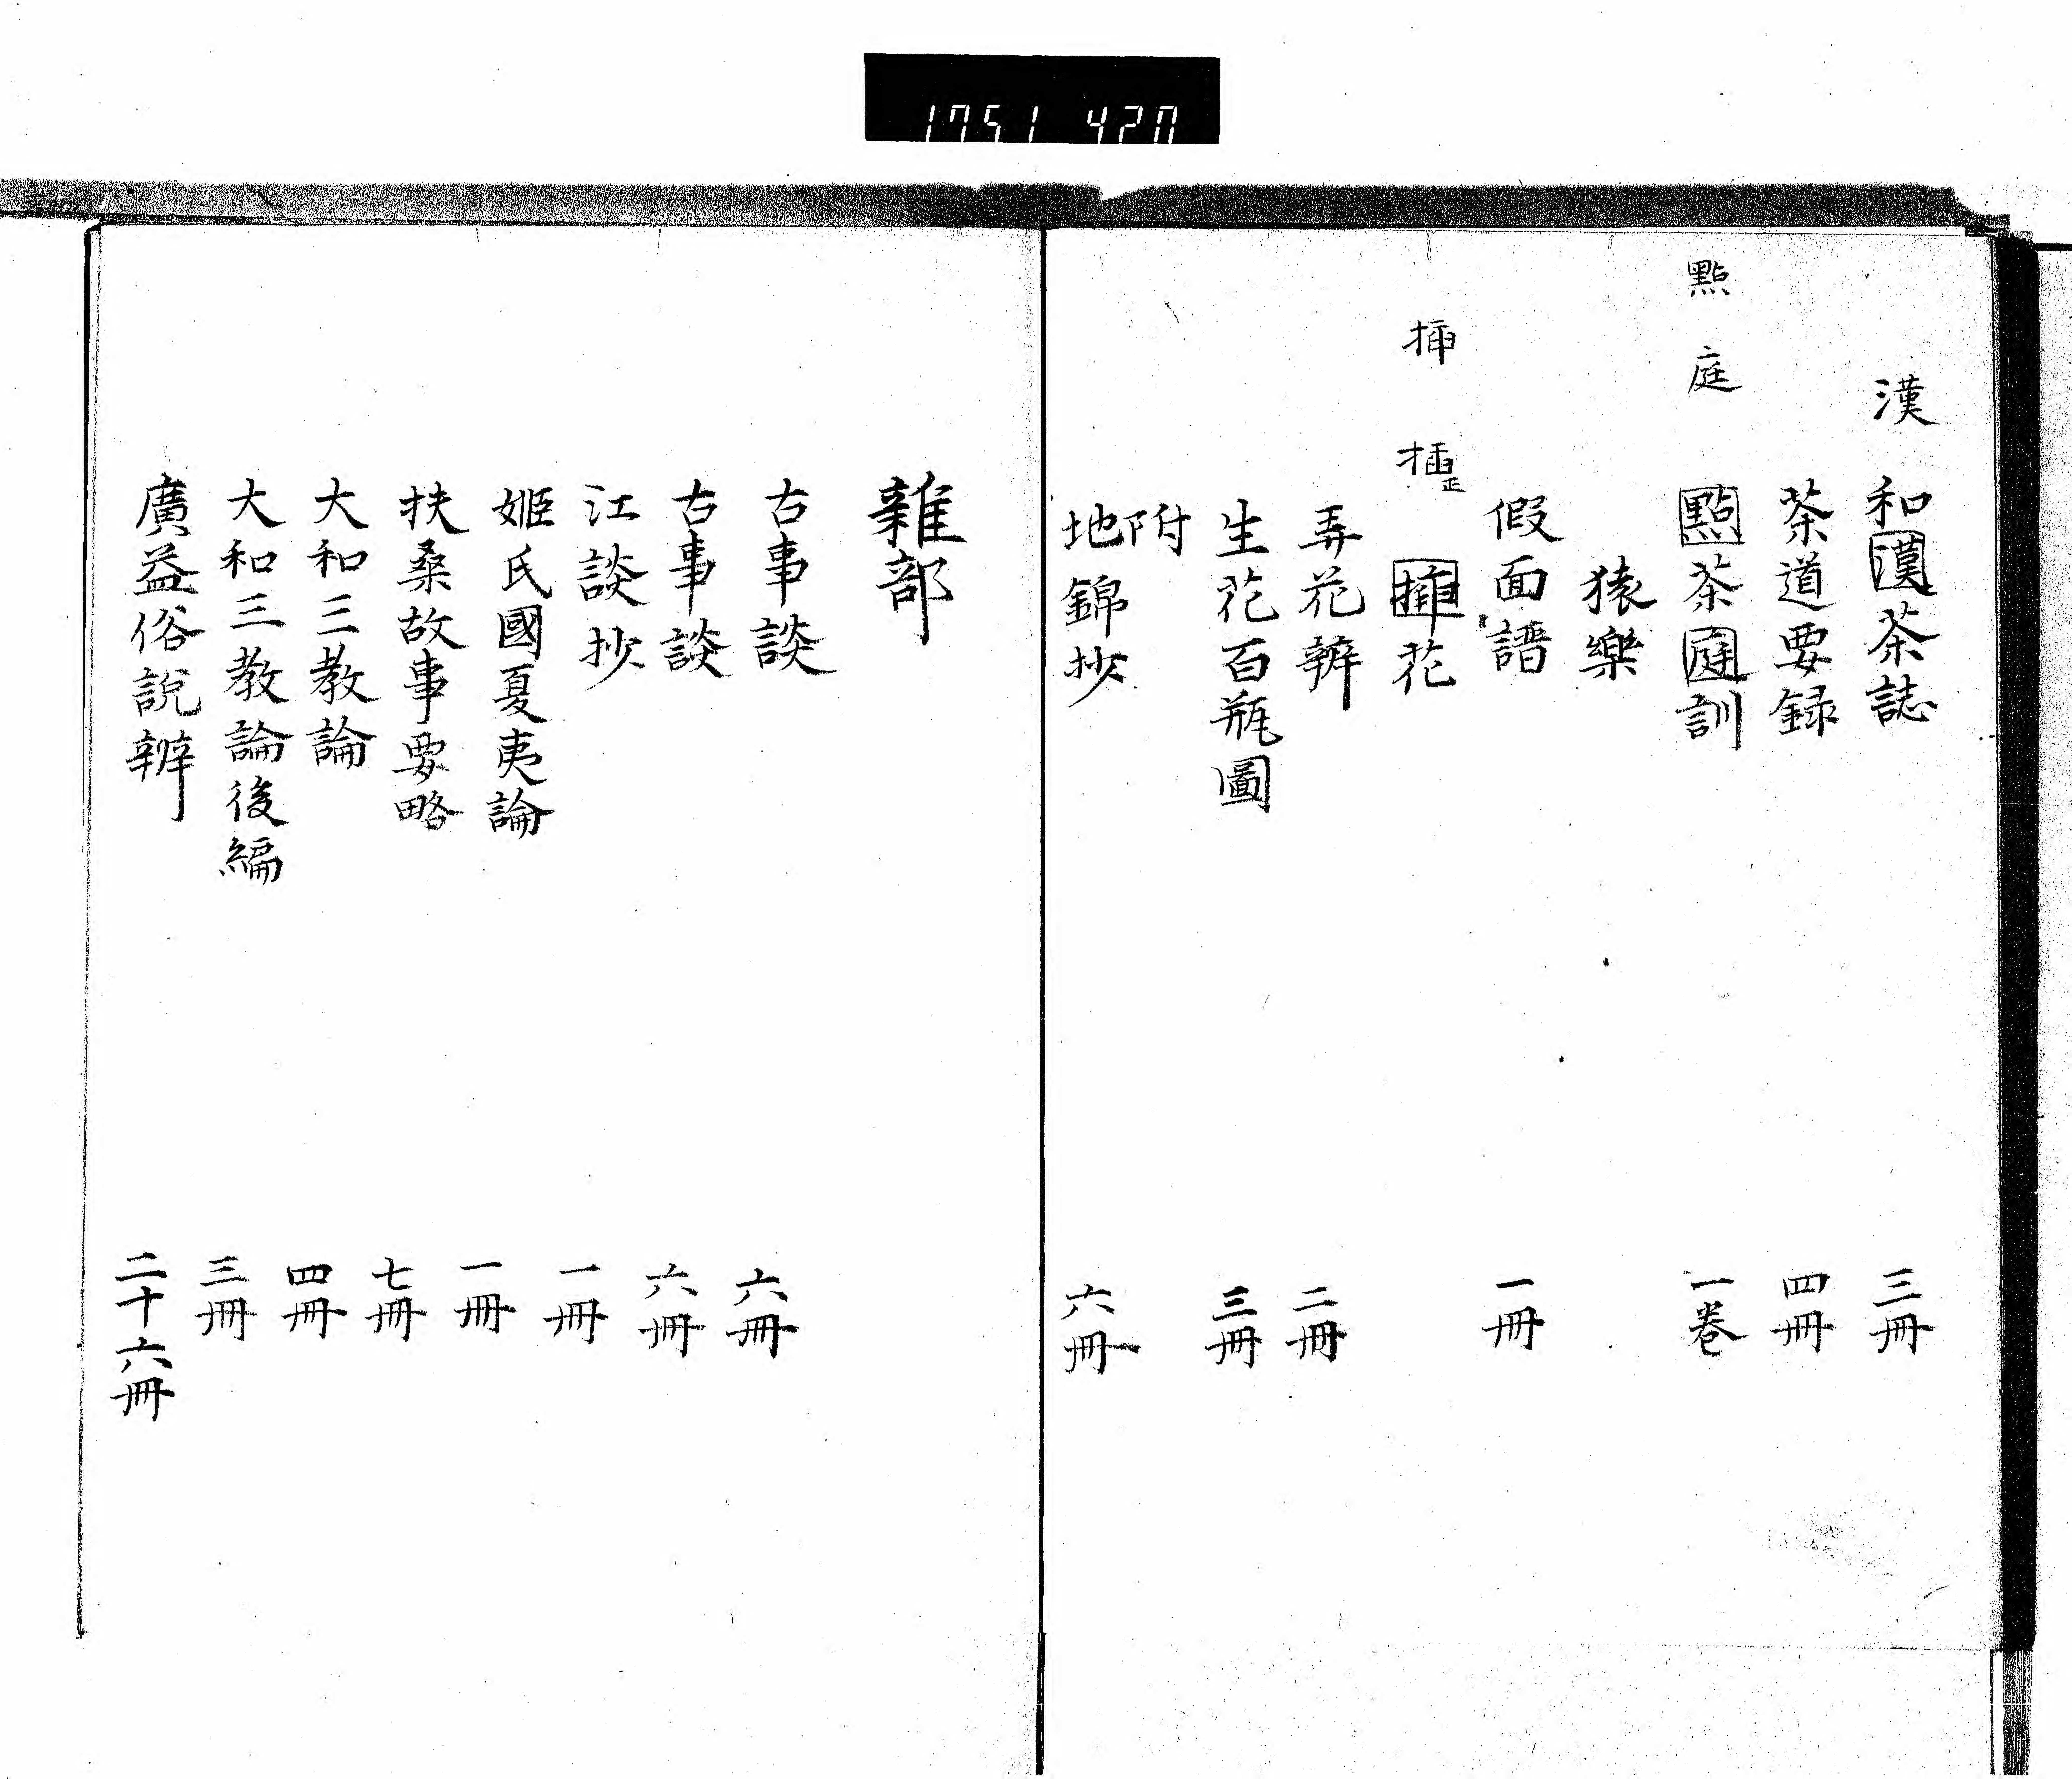 1751 420
漢
和漢茶誌 三冊
茶道要録 四冊
點 庭
點茶庭訓 一巻
猿樂
假面譜 一冊
挿 插正
揷花
弄花辨 二冊
生花百瓶圖 三冊
附
地錦抄 六冊
雜部
古事談 六冊
古事談 六冊
江談抄 一冊
姫氏國夏夷論 一冊
扶桑故事要略 七冊
大和三教論 四冊
大和三教論後編 三冊
廣益俗説辨 二十六冊